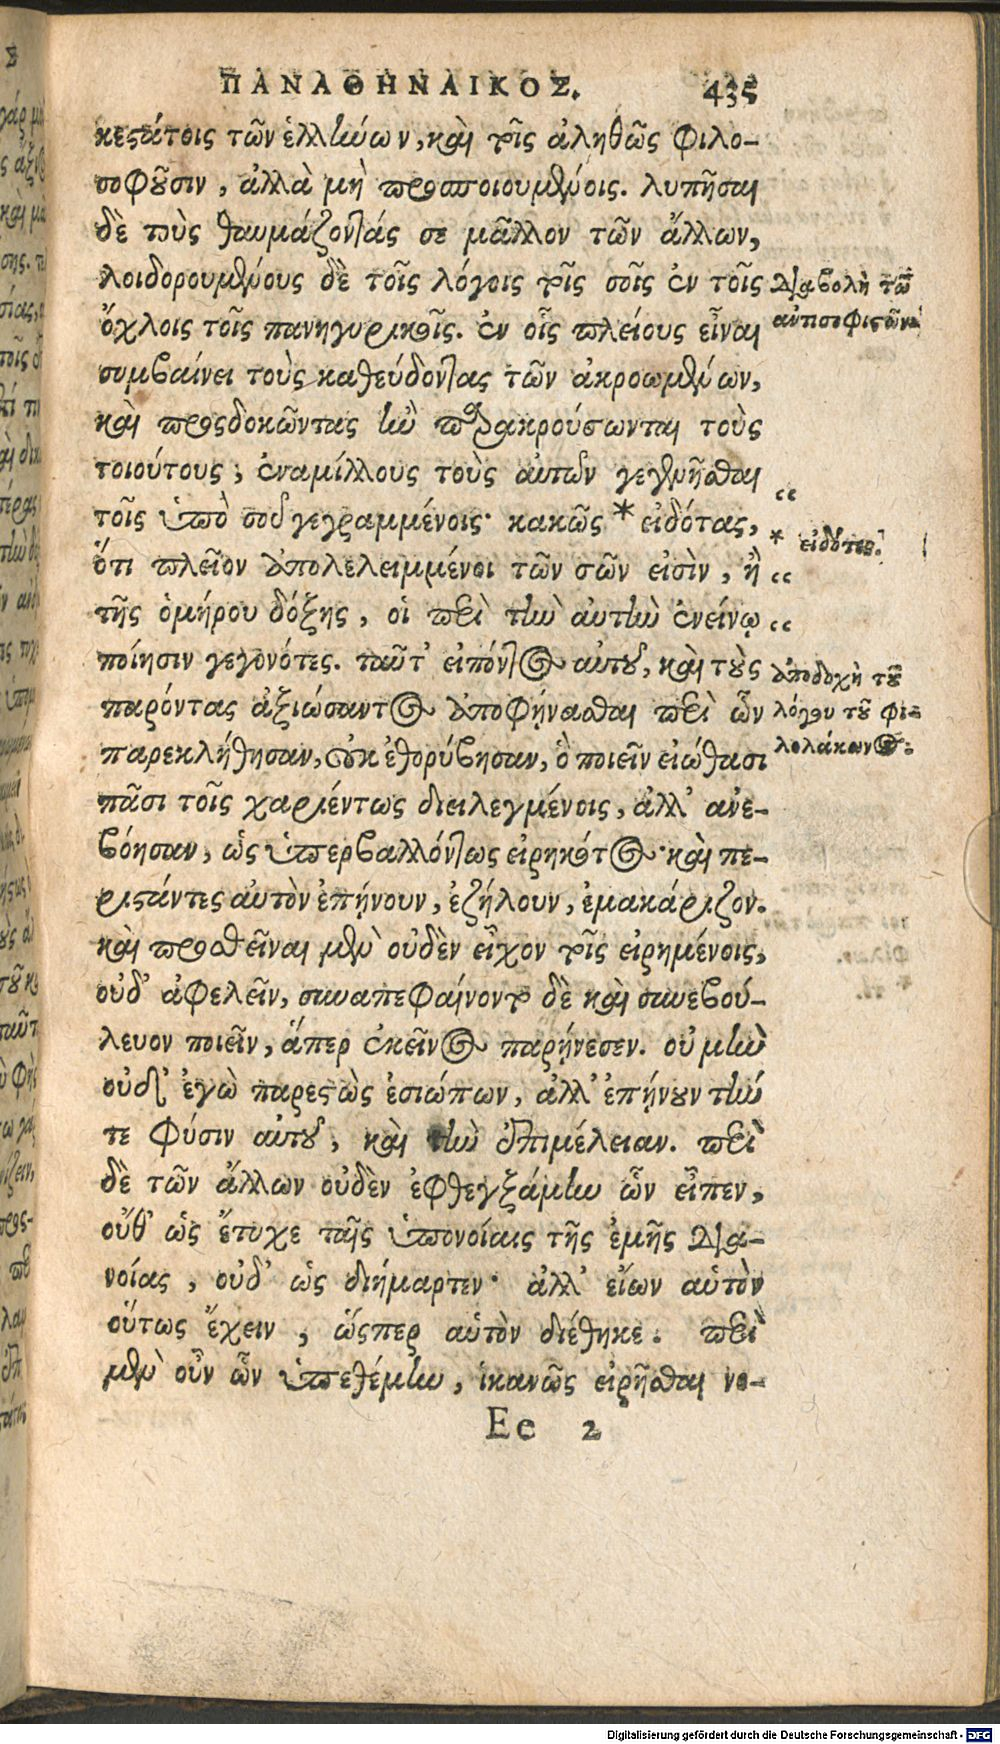 ΠΑΝΑΘΗΝΑΙΚΟΣ. 435
κεςάτοις τῶν ἑλλήνων, καὶ τοῖς ἀληθῶς φιλο-
σοφοῦσιν, ἀλλὰ μὴ προσποιουμένοις. λυπῆσαι
δὲ τοὺς θαυμάζοντάς σε μᾶλλον τῶν ἄλλων,
λοιδορουμένους δὲ τοῖς λόγοις τοῖς σοῖς ἐν τοῖς
ὄχλοις τοῖς πανηγυρικοῖς. ἐν οἷς πλείους εἶναι
συμβαίνει τοὺς καθεύδοντας τῶν ἀκροωμένων,
καὶ προςδοκῶντας ἢν παρακρούσωνται τοὺς
τοιούτους, ἐναμίλλους τοὺς αὐτῶν γεγενῆσθαι
τοῖς ὑπὸ σοῦ γεγραμμένοις· κακῶς * εἰδότας,
ὅτι πλεῖον ἀπολελειμμένοι τῶν σῶν εἰσὶν, ἢ
τῆς ὁμήρου δόξης, οἱ περὶ τὴν αὐτὴν ἐκείνῳ
ποίησιν γεγονότες. ταῦτ' εἰπόντος αὐτοῦ, καὶ τοὺς
παρόντας ἀξιώσαντος ἀποφήνασθαι περὶ ὧν
παρεκλήθησαν, οὐκ ἐθορύβησαν, ὃ ποιεῖν εἰώθασι
πᾶσι τοῖς χαριέντως διειλεγμένοις, ἀλλ' ἀνε-
βόησαν, ὡς ὑπερβαλλόντως εἰρηκότος· καὶ πε-
ριςάντες αὐτὸν ἐπῄνουν, ἐζήλουν, ἐμακάριζον.
καὶ προσθεῖναι μὲν οὐδὲν εἶχον τοῖς εἰρημένοις,
οὐδ' ἀφελεῖν, συναπεφαίνοντο δὲ καὶ συνεβού-
λευον ποιεῖν, ἅπερ ἐκεῖνος παρῄνεσεν. οὐ μὴν
οὐδ' ἐγὼ παρεςὼς ἐσιώπων, ἀλλ' ἐπῄνουν τήν
τε φύσιν αὐτοῦ, καὶ τὴν ἐπιμέλειαν. περὶ
δὲ τῶν ἄλλων οὐδὲν ἐφθεγξάμην ὧν εἶπεν,
οὔθ' ὡς ἔτυχε ταῖς ὑπονοίαις τῆς ἐμῆς δια-
νοίας, οὐδ' ὡς διήμαρτεν· ἀλλ' εἴων αὑτὸν
οὕτως ἔχειν, ὥςπερ αὑτὸν διέθηκε. περὶ
μὲν οὖν ὧν ὑπεθέμην, ἱκανῶς εἰρῆσθαι νο-
Ee 2
Διαβολὴ τῶν
ἀντισοφιςῶν.
* εἰδότες.
Ἀποδοχὴ τοῦ
λόγου τοῦ φι-
λολάκωνος.
Digitalisierung gefördert durch die Deutsche Forschungsgemeinschaft - DFG